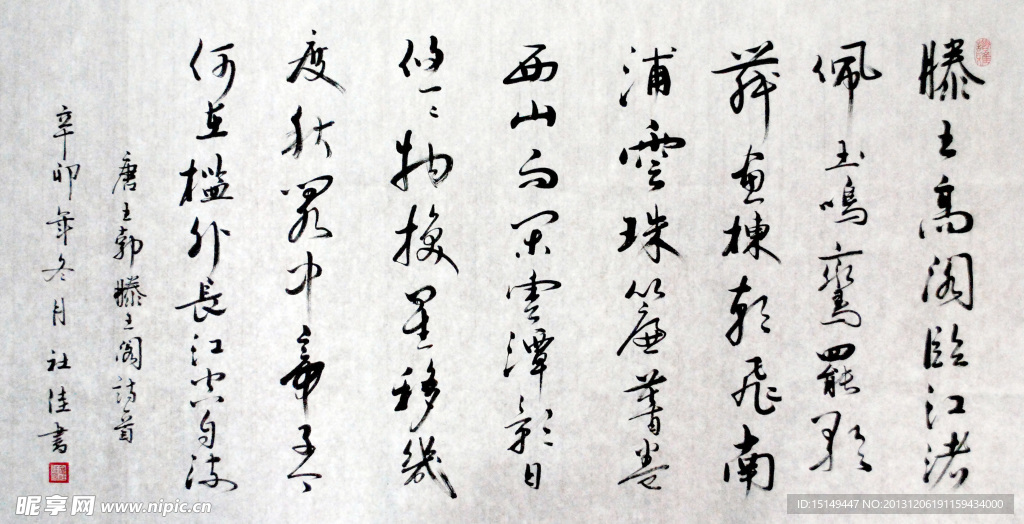 滕王高阁臨江渚
佩玉鳴鸞罷歌
舞画棟朝飛南
浦雲珠簾暮卷
西山雨闲雲潭影日
悠〻物換星移幾
度秋阁中帝子今
何在檻外長江空自流
唐王勃滕王阁詩首
辛卯年冬月 社佳書
昵享网 www.nipic.cn
ID:15149447 NO:20131206191159434000